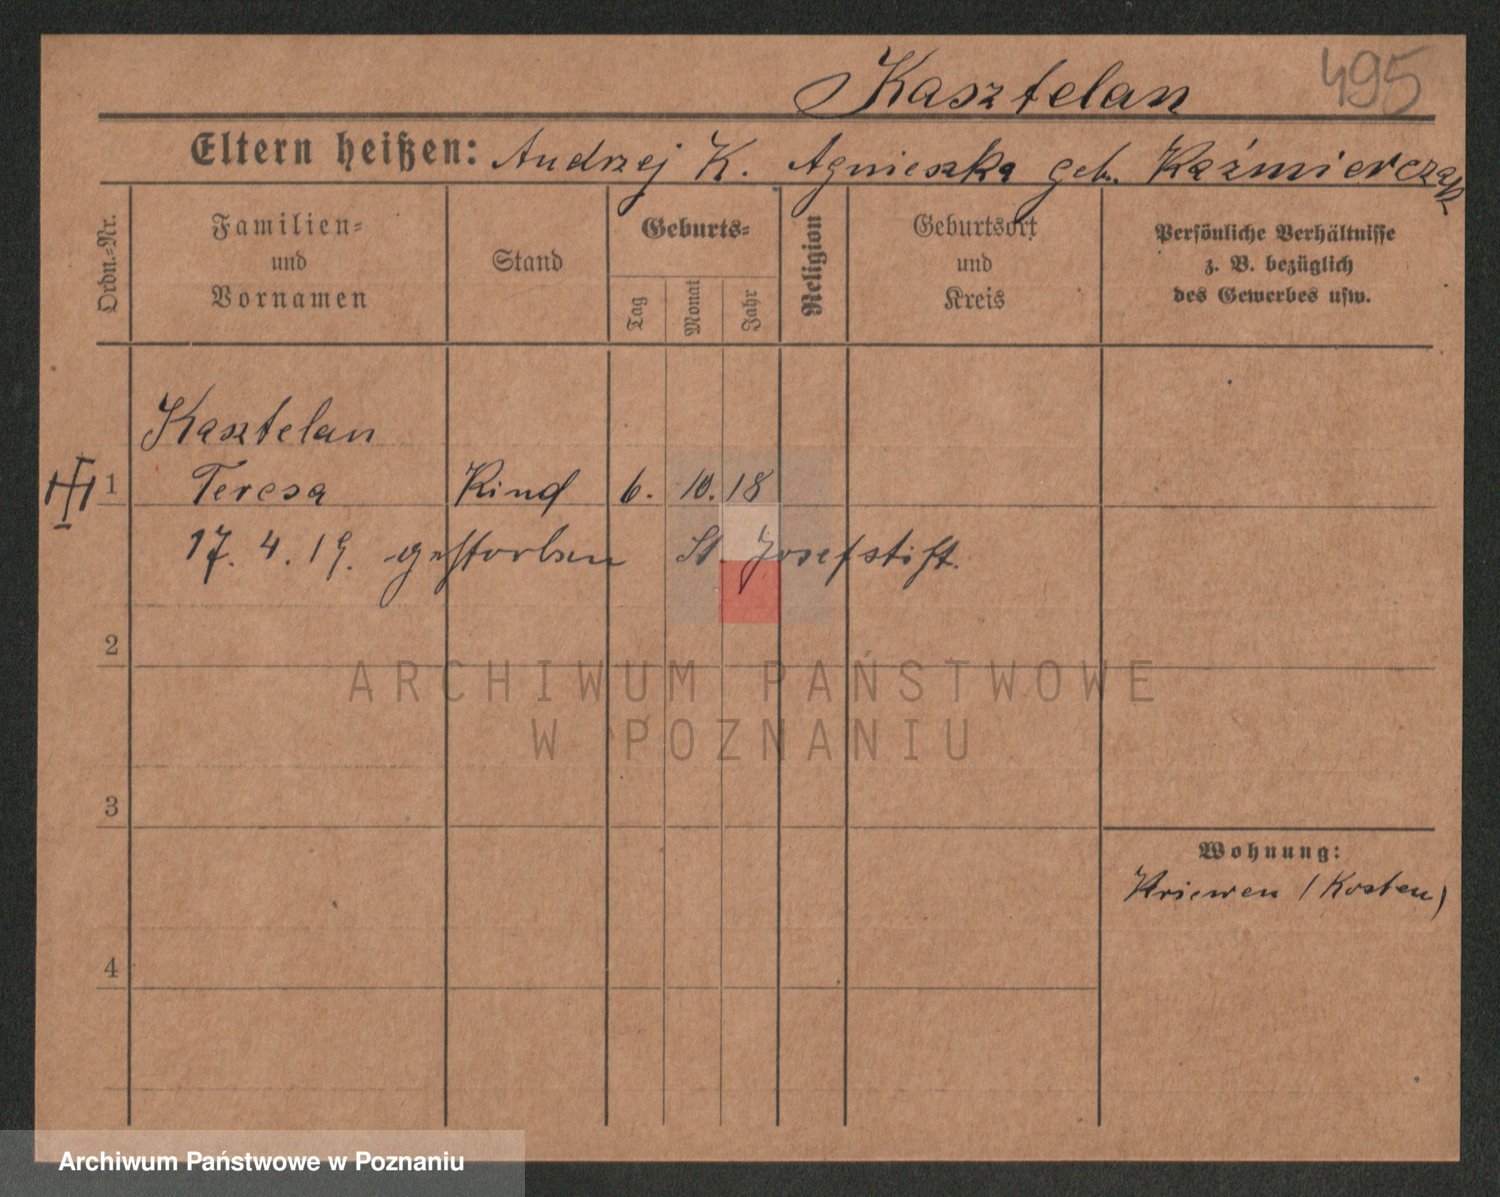 Kasztelan 495
Eltern heißen: Andrzej K. Agnieszka geb. Kaźmierczak
Ordn.-Nr.
Familien-
und
Vornamen
Stand
Geburts-
Tag
Monat
Jahr
Religion
Geburtsort
und
Kreis
Persönliche Verhältnisse
z. B. bezüglich
des Gewerbes usw.
Kasztelan
1 Teresa Kind 6. 10. 18
17. 4. 19. gestorben St. Josefstift.
2
ARCHIWUM PAŃSTWOWE
W POZNANIU
3
Wohnung:
Kriewen (Kosten)
4
Archiwum Państwowe w Poznaniu